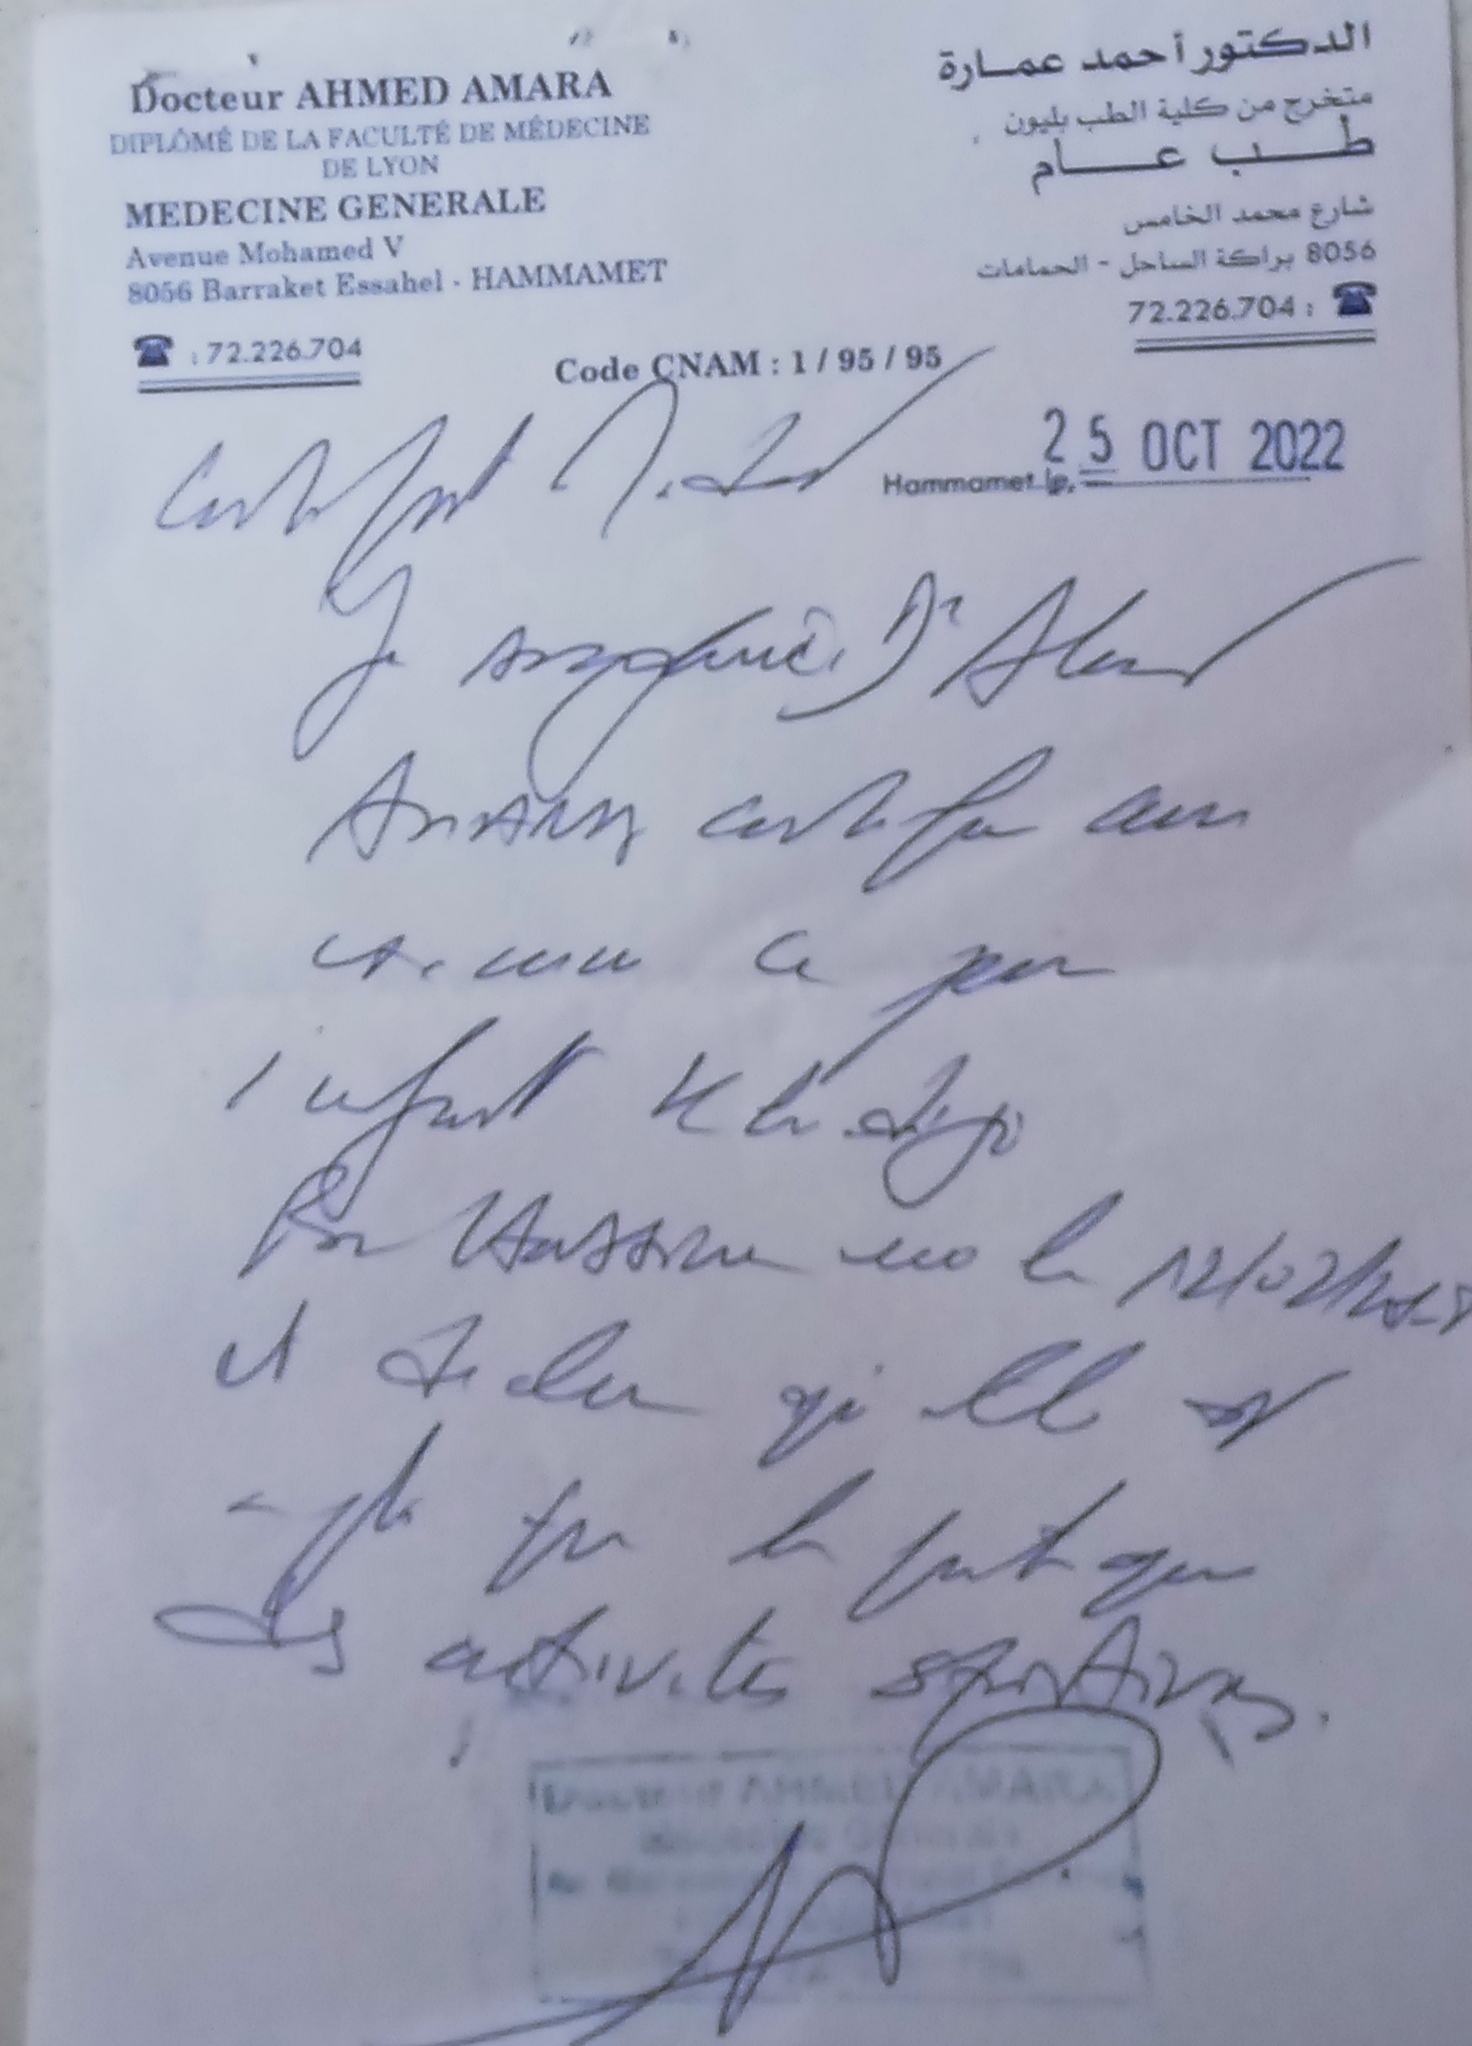 Docteur AHMED AMARA
DIPLÔMÉ DE LA FACULTÉ DE MÉDECINE
DE LYON
MEDECINE GENERALE
Avenue Mohamed V
8056 Barraket Essahel - HAMMAMET
☎ : 72.226.704
الدكتور أحمد عمارة
متخرج من كلية الطب بليون
طب عام
شارع محمد الخامس
8056 براكة الساحل - الحمامات
72.226.704 : ☎
Code CNAM : 1 / 95 / 95
Hammamet le, 25 OCT 2022
Certificat Médical
Je soussigné Dr Ahmed
Amara certifie avoir
examiné ce jour
l'enfant
Ben Hassine née le 12/02/
et déclare qu'elle est
apte pour la pratique
des activités sportives.
Docteur AHMED AMARA
Médecine Générale